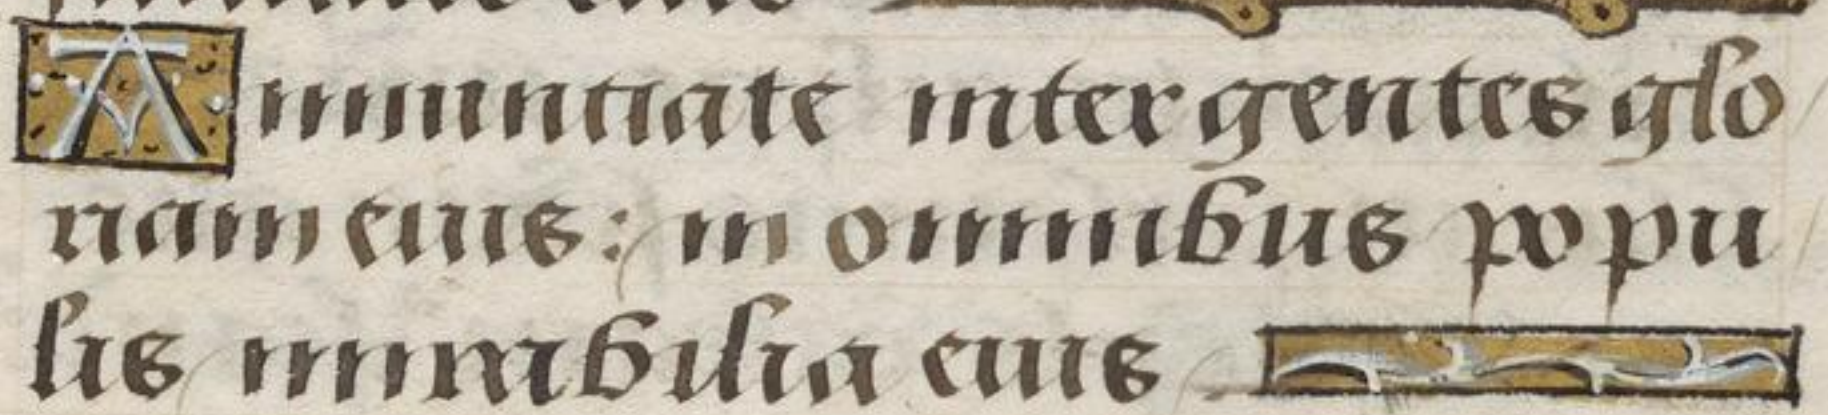 Annuntiate inter gentes glo
riam eius: in omnibus popu
lis mirabilia eius